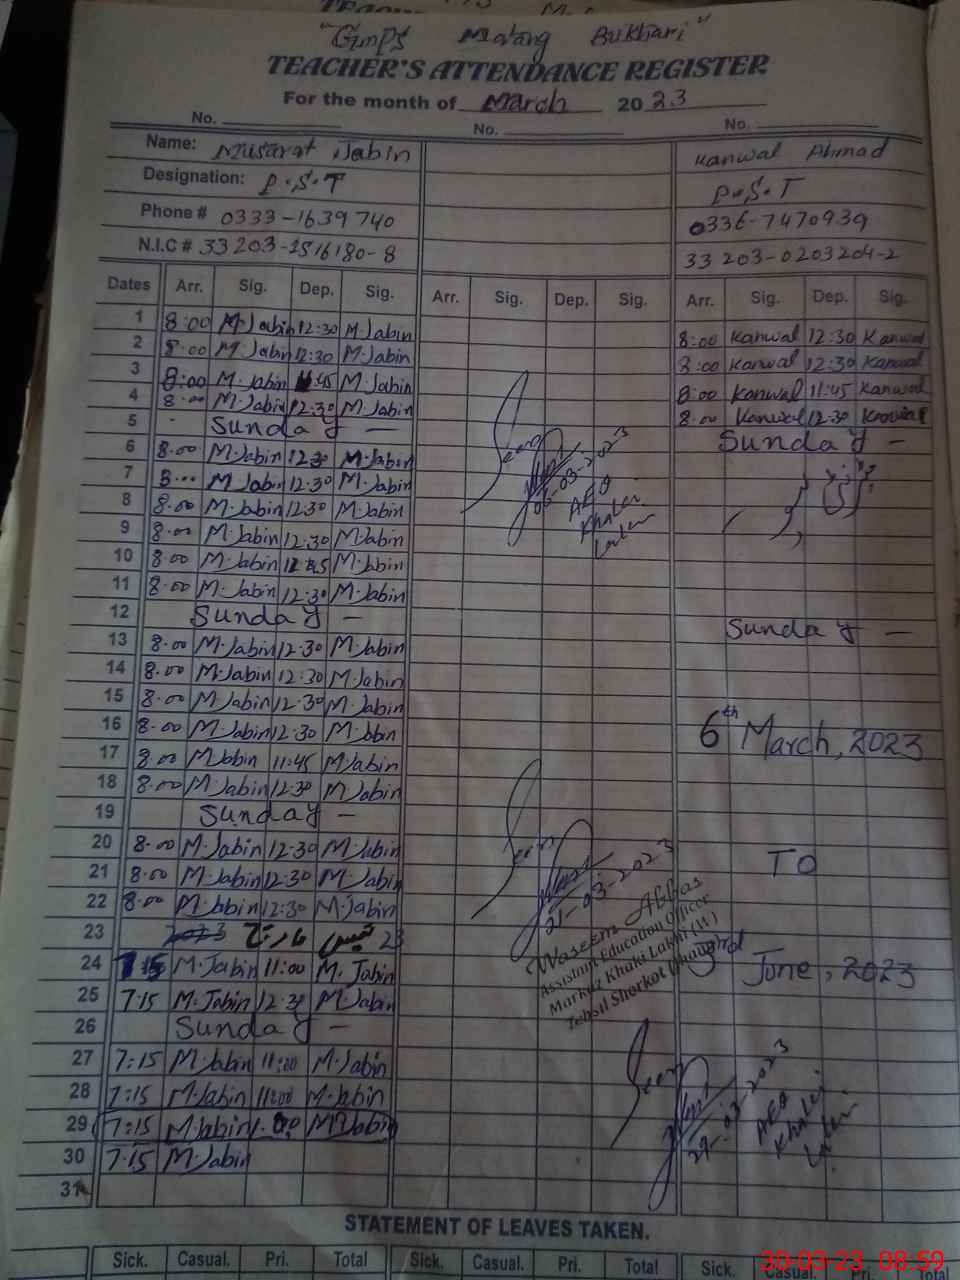 "Gmps Malang Bukhari"
TEACHER'S ATTENDANCE REGISTER
For the month of March 2023
No. No. No.
Name: Musarat Jabin Kanwal Ahmad
Designation: P.S.T P.S.T
Phone # 0333-1639740 0336-7470939
N.I.C # 33203-1516180-8 33203-0203204-2
Dates Arr. Sig. Dep. Sig. Arr. Sig. Dep. Sig. Arr. Sig. Dep. Sig.
1 8:00 M.Jabin 12:30 M.Jabin 8:00 Kanwal 12:30 Kanwal
2 8:00 M.Jabin 12:30 M.Jabin 8:00 Kanwal 12:30 Kanwal
3 8:00 M.Jabin 11:45 M.Jabin 8:00 Kanwal 11:45 Kanwal
4 8.00 M.Jabin 12:30 M.Jabin 8.00 Kanwal 12.30 Kanwal
5 - Sunday — Sunday —
6 8.00 M.Jabin 12:30 M.Jabin Seen
7 8.00 M.Jabin 12:30 M.Jabin 06-03-2023
8 8.00 M.Jabin 12:30 M.Jabin AEO
9 8.00 M.Jabin 12:30 M.Jabin Khaki
10 8.00 M.Jabin 11:45 M.Jabin
11 8.00 M.Jabin 12:30 M.Jabin
12 Sunday — Sunday —
13 8.00 M.Jabin 12.30 M.Jabin
14 8.00 M.Jabin 12:30 M.Jabin
15 8.00 M.Jabin 12:30 M.Jabin
16 8.00 M.Jabin 12:30 M.Jabin 6th March, 2023
17 8.00 M.Jabin 11:45 M.Jabin
18 8.00 M.Jabin 12:30 M.Jabin
19 Sunday —
20 8.00 M.Jabin 12:30 M.Jabin Seen TO
21 8.00 M.Jabin 12:30 M.Jabin 21-03-2023
22 8.00 M.Jabin 12:30 M.Jabin Waseem Abbas
23 2023 مارچ تئیس 23 Assistant Education Officer
24 7:15 M.Jabin 11:00 M.Jabin Markaz Khaki Lakhi (W) 3rd June, 2023
25 7.15 M.Jabin 12:30 M.Jabin Tehsil Shorkot (Jhang)
26 Sunday —
27 7:15 M.Jabin 11:00 M.Jabin Seen
28 7:15 M.Jabin 11:00 M.Jabin 29-03-2023
29 7:15 M.Jabin M.Jabin AEO
30 7.15 M.Jabin Khaki
31
STATEMENT OF LEAVES TAKEN.
Sick. Casual. Pri. Total Sick. Casual. Pri. Total Sick. Casual. Pri.
30-03-23 08:59